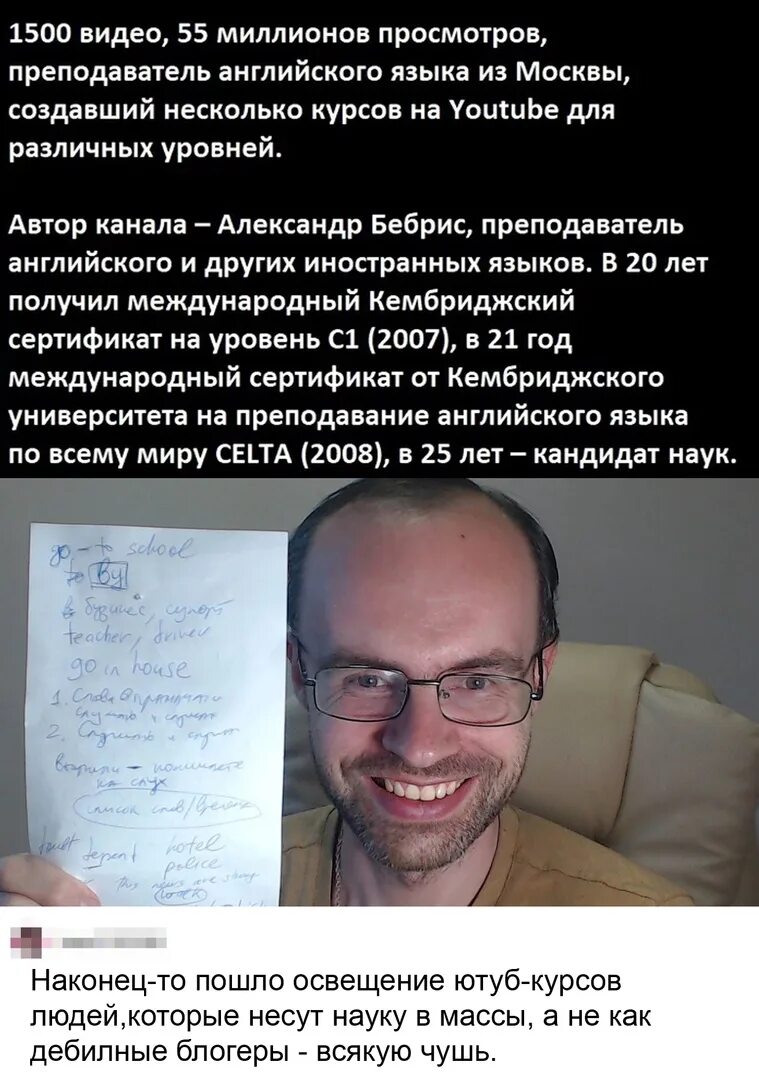 1500 видео, 55 миллионов просмотров,
преподаватель английского языка из Москвы,
создавший несколько курсов на Youtube для
различных уровней.
Автор канала – Александр Бебрис, преподаватель
английского и других иностранных языков. В 20 лет
получил международный Кембриджский
сертификат на уровень C1 (2007), в 21 год
международный сертификат от Кембриджского
университета на преподавание английского языка
по всему миру CELTA (2008), в 25 лет – кандидат наук.
go – to school
By
teacher, driver
go in house
1. Слова
2.
на слух
список слов/
hotel
police
this news are
Наконец-то пошло освещение ютуб-курсов
людей,которые несут науку в массы, а не как
дебилные блогеры - всякую чушь.